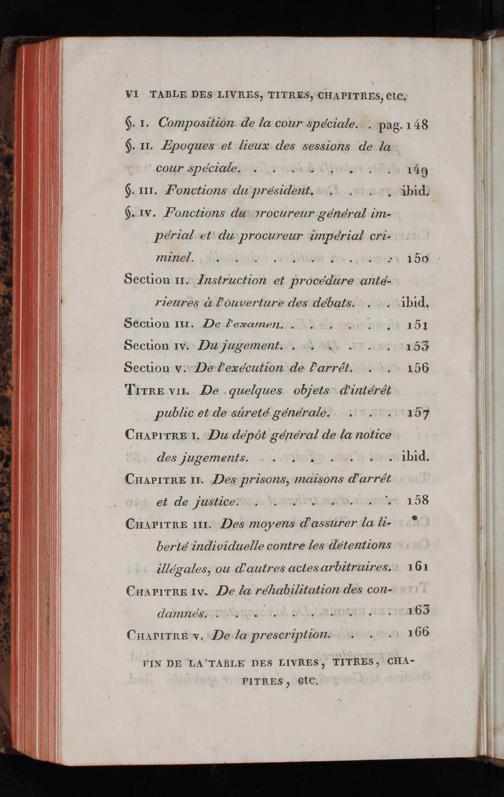 VI TABLE DES LIVRES, TITRES, CHAPITRES, etc.
§. I. Composition de la cour spéciale. . pag. 148
§. II. Epoques et lieux des sessions de la
cour spéciale. . . . . . . . . 149
§. III. Fonctions du président. . . . . ibid.
§. IV. Fonctions du procureur général im-
périal et du procureur impérial cri-
minel. . . . . . . . . . . 150
Section II. Instruction et procédure anté-
rieures à l'ouverture des débats. . . ibid.
Section III. De l'examen. . . . . . . 151
Section IV. Du jugement. . . . . . . 153
Section V. De l'exécution de l'arrêt. . . 156
TITRE VII. De quelques objets d'intérêt
public et de sûreté générale. . . . 157
CHAPITRE I. Du dépôt général de la notice
des jugements. . . . . . . . ibid.
CHAPITRE II. Des prisons, maisons d'arrêt
et de justice. . . . . . . . . 158
CHAPITRE III. Des moyens d'assurer la li-
berté individuelle contre les détentions
illégales, ou d'autres actes arbitraires. 161
CHAPITRE IV. De la réhabilitation des con-
damnés. . . . . . . . . . 163
CHAPITRE V. De la prescription. . . . 166
FIN DE LA TABLE DES LIVRES, TITRES, CHA-
PITRES, etc.